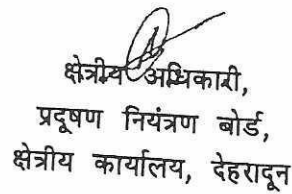 क्षेत्रीय अधिकारी,
प्रदूषण नियंत्रण बोर्ड,
क्षेत्रीय कार्यालय, देहरादून